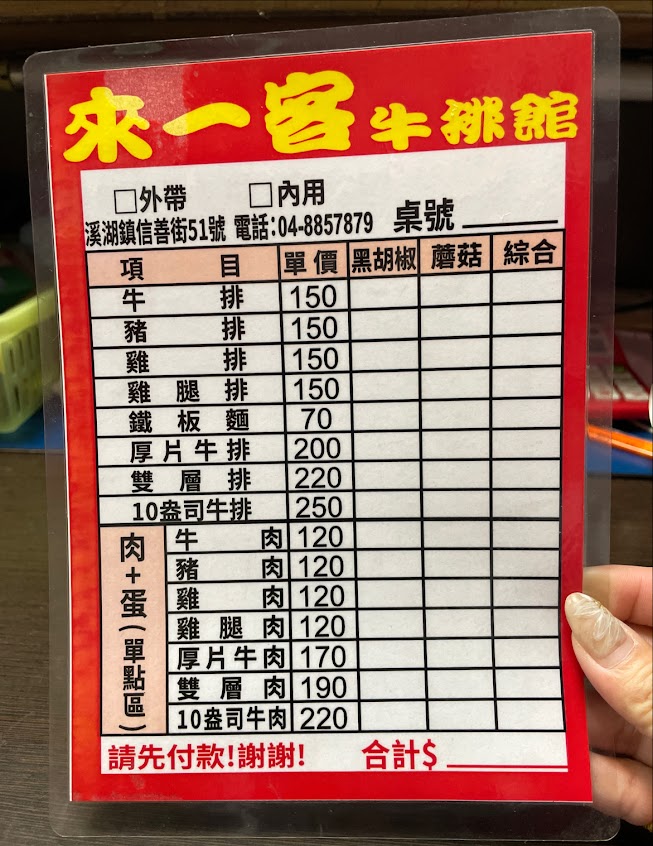 來一客牛排館
□外帶 □內用
溪湖鎮信善街51號 電話:04-8857879 桌號
項目 單價 黑胡椒 蘑菇 綜合
牛排 150
豬排 150
雞排 150
雞腿排 150
鐵板麵 70
厚片牛排 200
雙層排 220
10盎司牛排 250
肉+蛋(單點區)
牛肉 120
豬肉 120
雞肉 120
雞腿肉 120
厚片牛肉 170
雙層肉 190
10盎司牛肉 220
請先付款!謝謝! 合計$